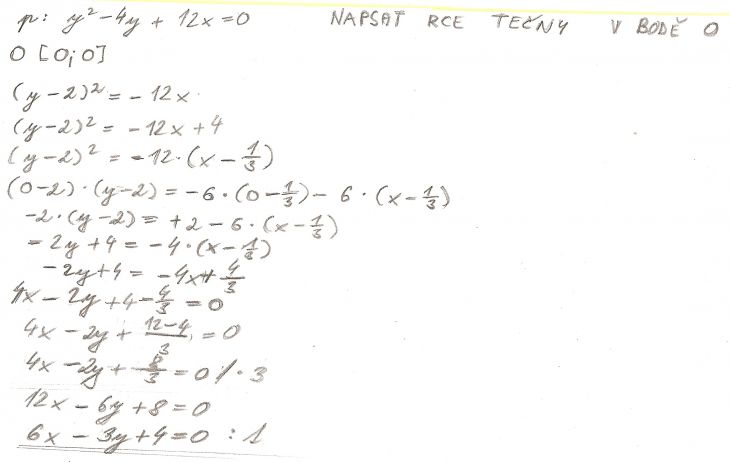 p: y² - 4y + 12x = 0 NAPSAT RCE TEČNY V BODĚ O
O [0; 0]
(y-2)² = -12x
(y-2)² = -12x + 4
(y-2)² = -12·(x - 1/3)
(0-2)·(y-2) = -6·(0 - 1/3) - 6·(x - 1/3)
-2·(y-2) = +2 - 6·(x - 1/3)
-2y + 4 = -4·(x - 1/3)
-2y + 4 = -4x + 4/3
4x - 2y + 4 - 4/3 = 0
4x - 2y + 12-4/3 = 0
4x - 2y + 8/3 = 0 /·3
12x - 6y + 8 = 0
6x - 3y + 4 = 0 : 1